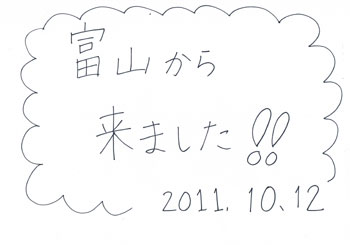 富山から
来ました!!
2011.10.12